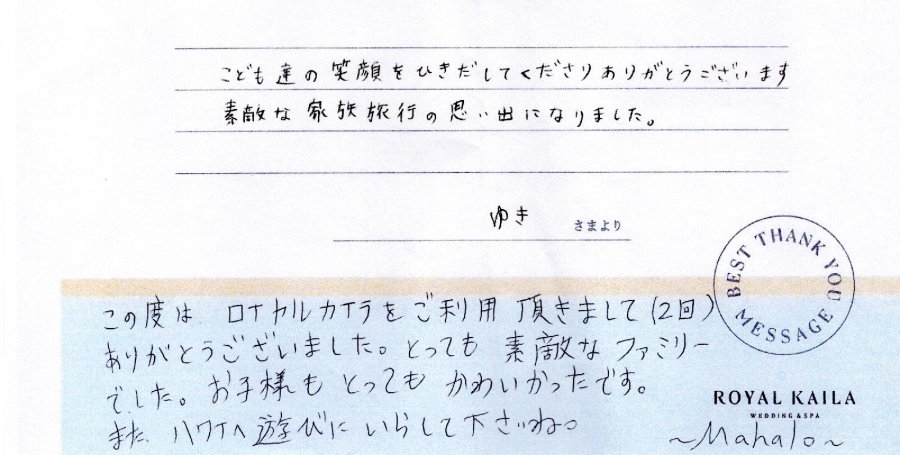 こども達の笑顔をひきだしてくださりありがとうございます
素敵な家族旅行の思い出になりました。
ゆき さまより
BEST THANK YOU MESSAGE
この度は、ロイヤルカイラをご利用頂きまして(2回)
ありがとうございました。とっても素敵なファミリー
でした。お子様もとってもかわいかったです。
また、ハワイへ遊びにいらして下さいね。
ROYAL KAILA
WEDDING & SPA
~Mahalo~